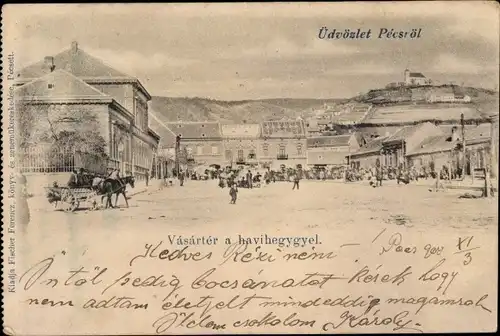 Üdvözlet Pécsről
Kiadja Fischer Ferencz könyv- és zeneműkereskedése, Pécsett.
Vásártér a havihegygyel.
Pécs 900 XI/3
Kedves Rézi néni!
Öntől pedig bocsánatot kérek hogy
nem adtam életjelt mindeddig magamról
csókolom Károly